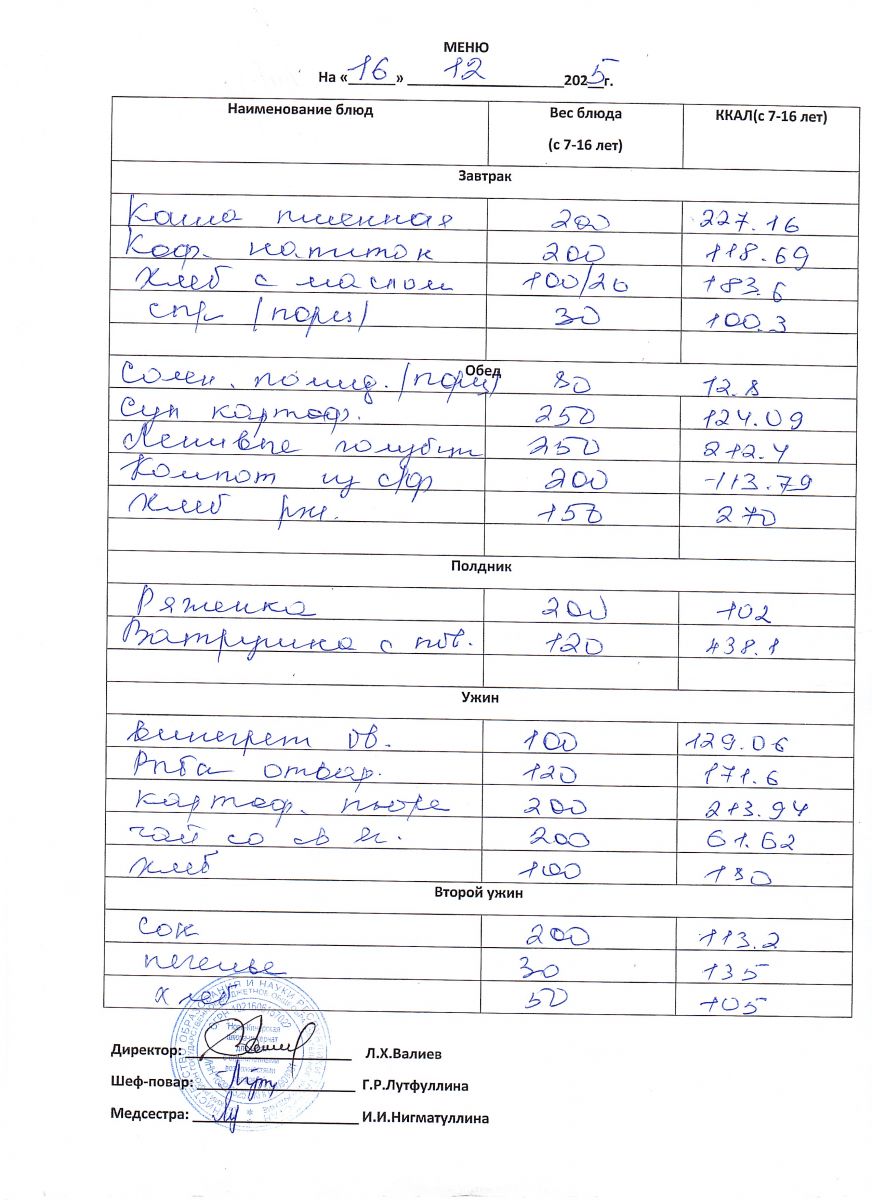 МЕНЮ
На «16» 12 2025г.
Наименование блюд Вес блюда (с 7-16 лет) ККАЛ(с 7-16 лет)
Завтрак
Каша пшенная 200 227.16
Коф. напиток 200 118.69
Хлеб с маслом 100/20 183.6
спр (порц) 30 100.3
Обед
Солен. помид. (порц) 80 12.8
Суп картоф. 250 124.09
Ленивые голубцы 250 212.4
Компот из с/ф 200 113.79
Хлеб рж. 150 270
Полдник
Ряженка 200 102
Ватрушка с пов. 120 438.1
Ужин
Винегрет ов. 100 129.06
Рыба отвар. 120 171.6
картоф. пюре 200 213.94
чай со 200 61.62
хлеб 100 180
Второй ужин
сок 200 113.2
печенье 30 135
хлеб 50 105
Директор: Л.Х.Валиев
Шеф-повар: Г.Р.Лутфуллина
Медсестра: И.И.Нигматуллина